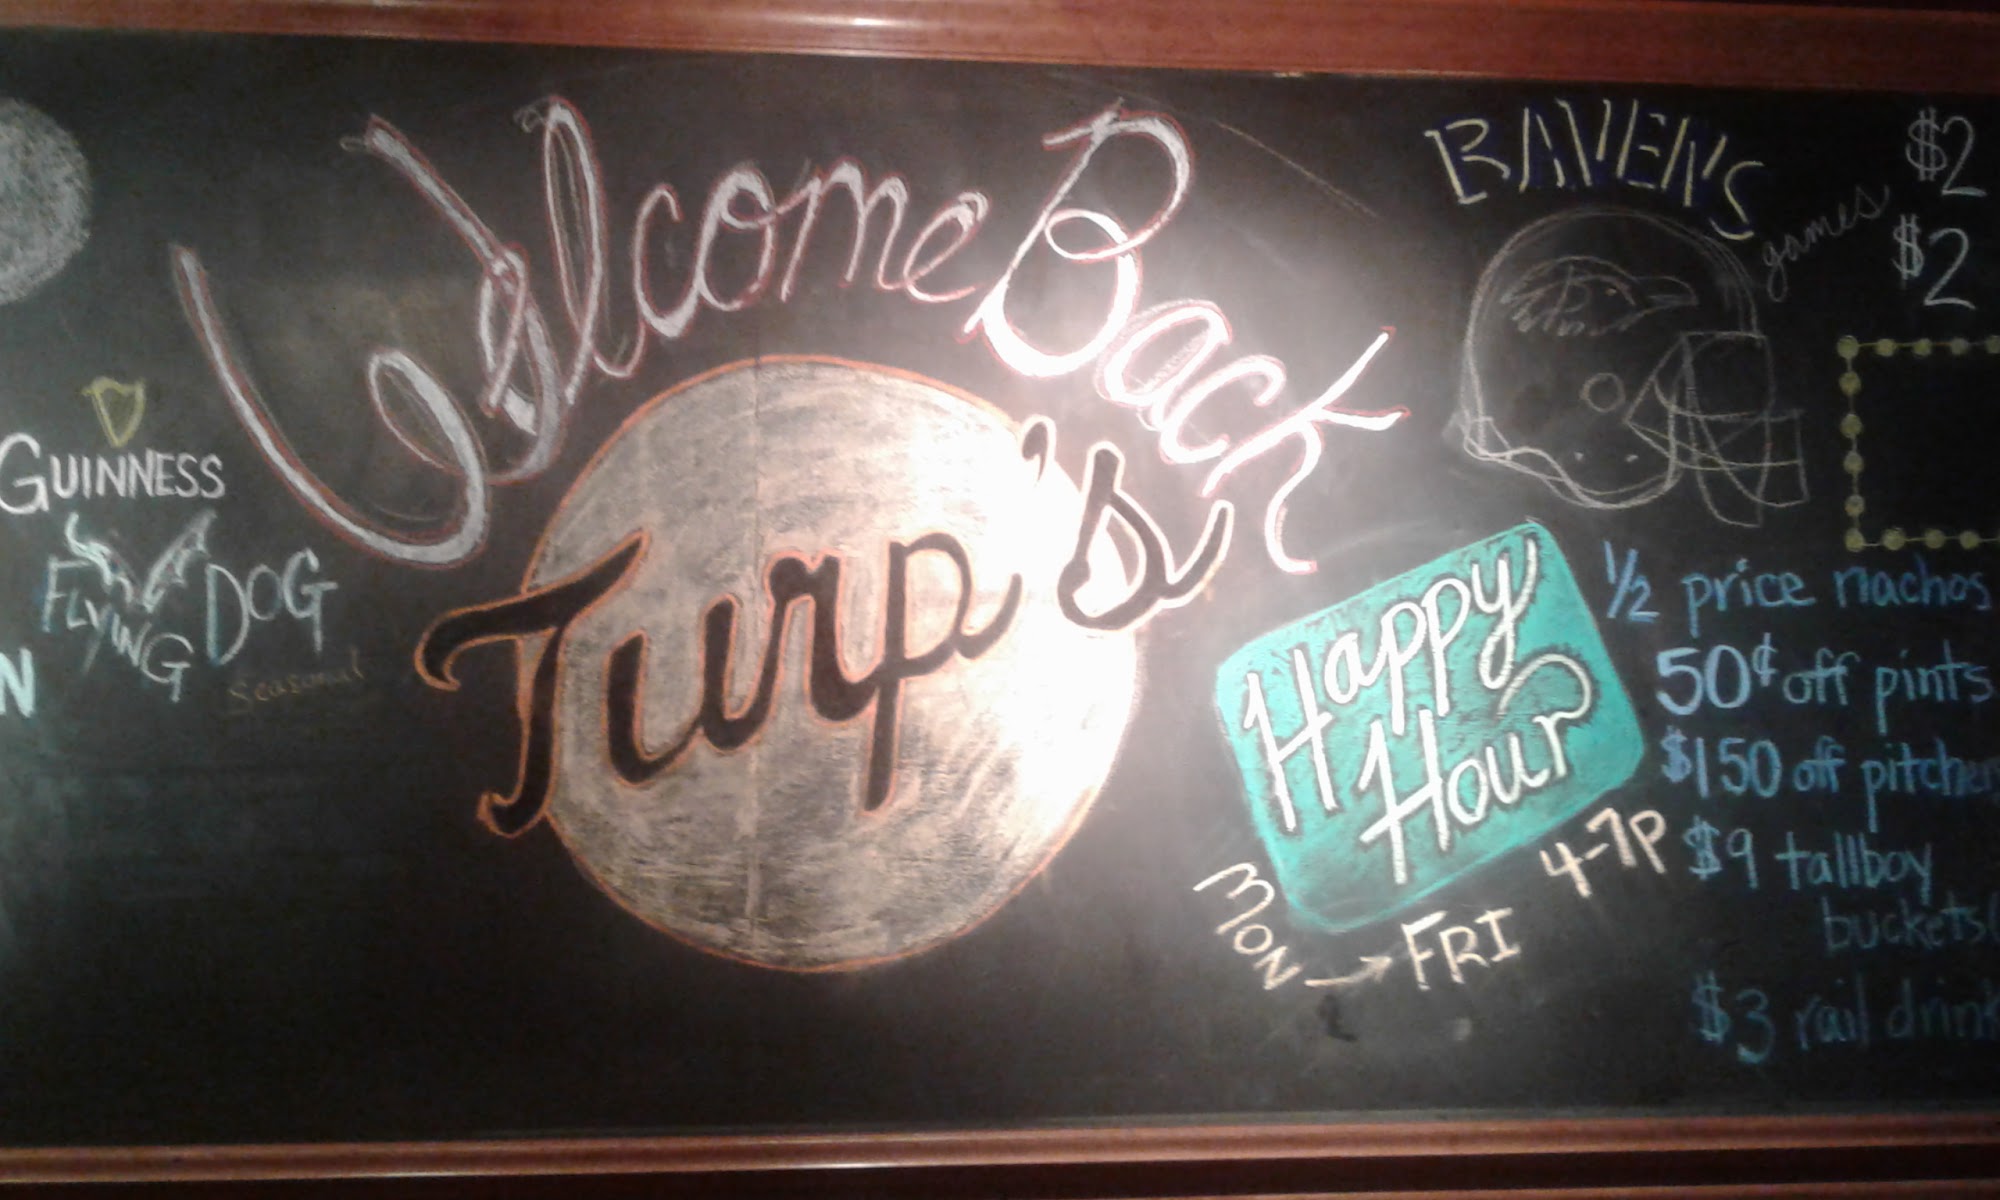 Welcome Back
Turp's
GUINNESS
FLYING DOG
Seasonal
N
RAVENS
games
$2
$2
Happy
Hour
MON → FRI
4-7P
1/2 price nachos
50¢ off pints
$150 off pitchers
$9 tallboy
buckets(
$3 rail drink